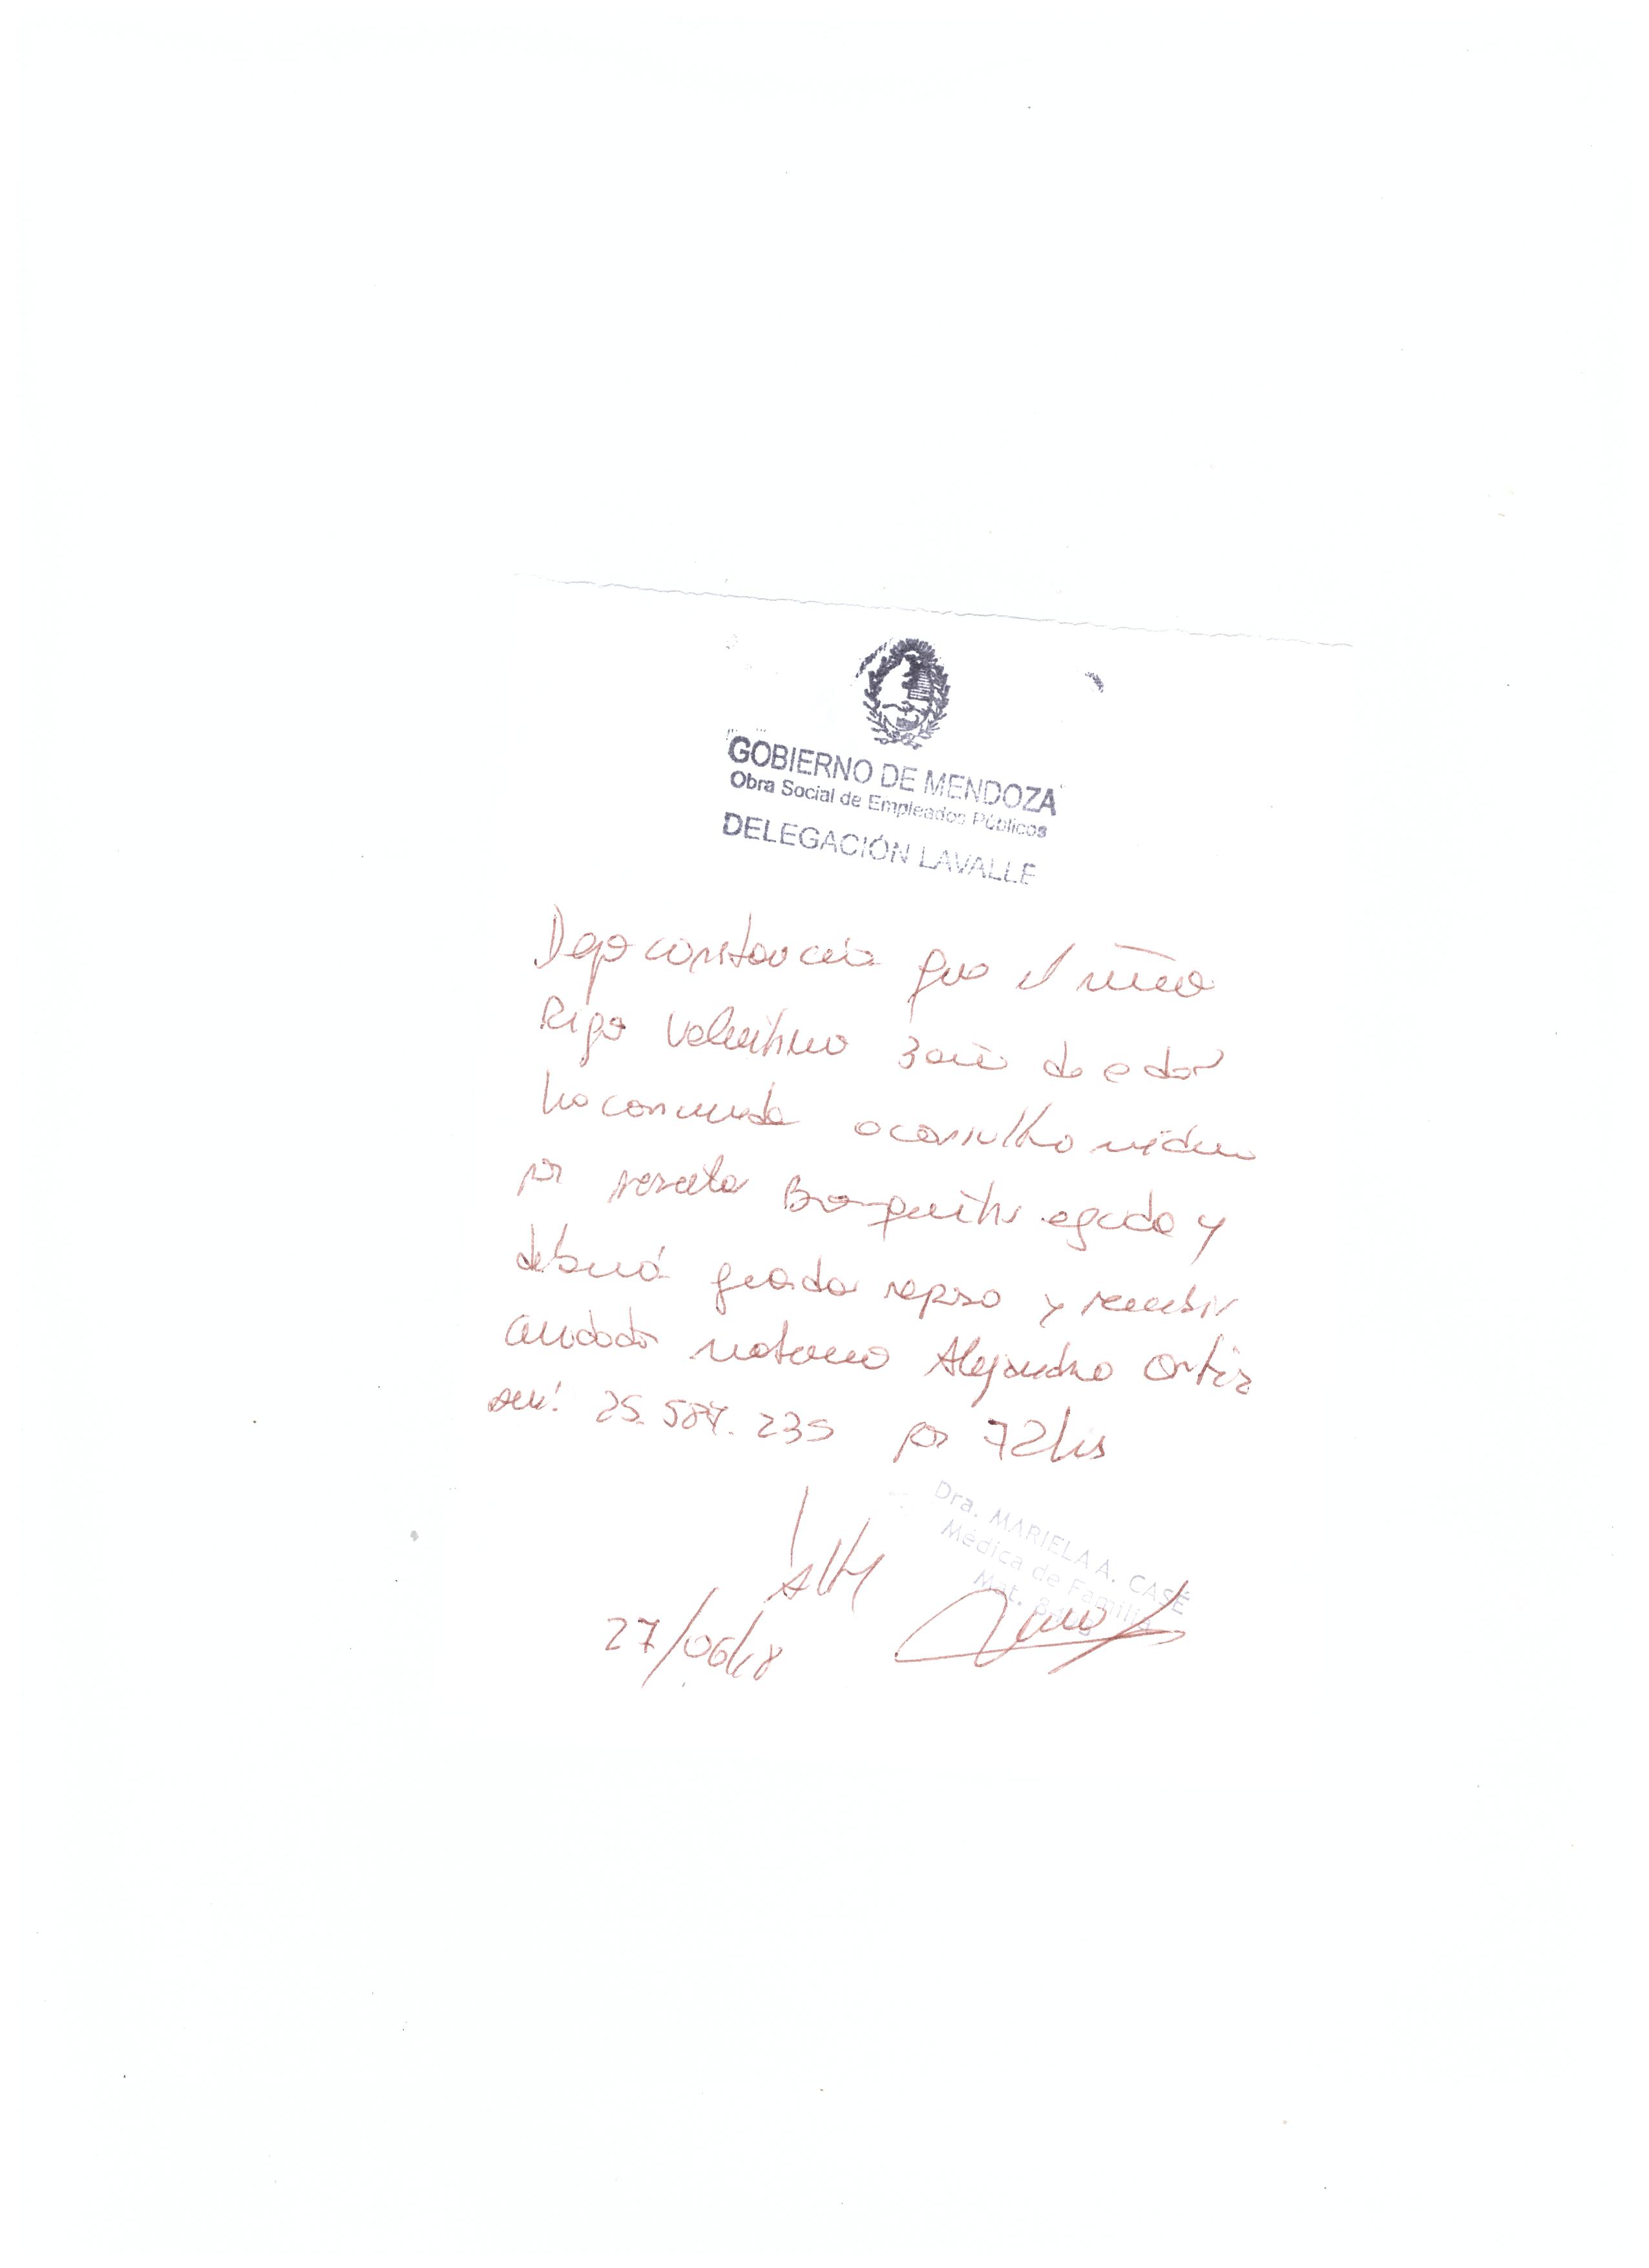 GOBIERNO DE MENDOZA
Obra Social de Empleados Públicos
DELEGACIÓN LAVALLE
Dejo constancia que el niño
Rigo Valentino 3 años de edad
ha concurrido a consultorio médico
por presentar Bronquitis aguda y
deberá guardar reposo y recibir
cuidado materno Alejandra Ortiz
DNI: 25.587.235 por 72hs
Dra. MARIELA A. CASÉ
Médica de Familia
Mat.
27/06/18